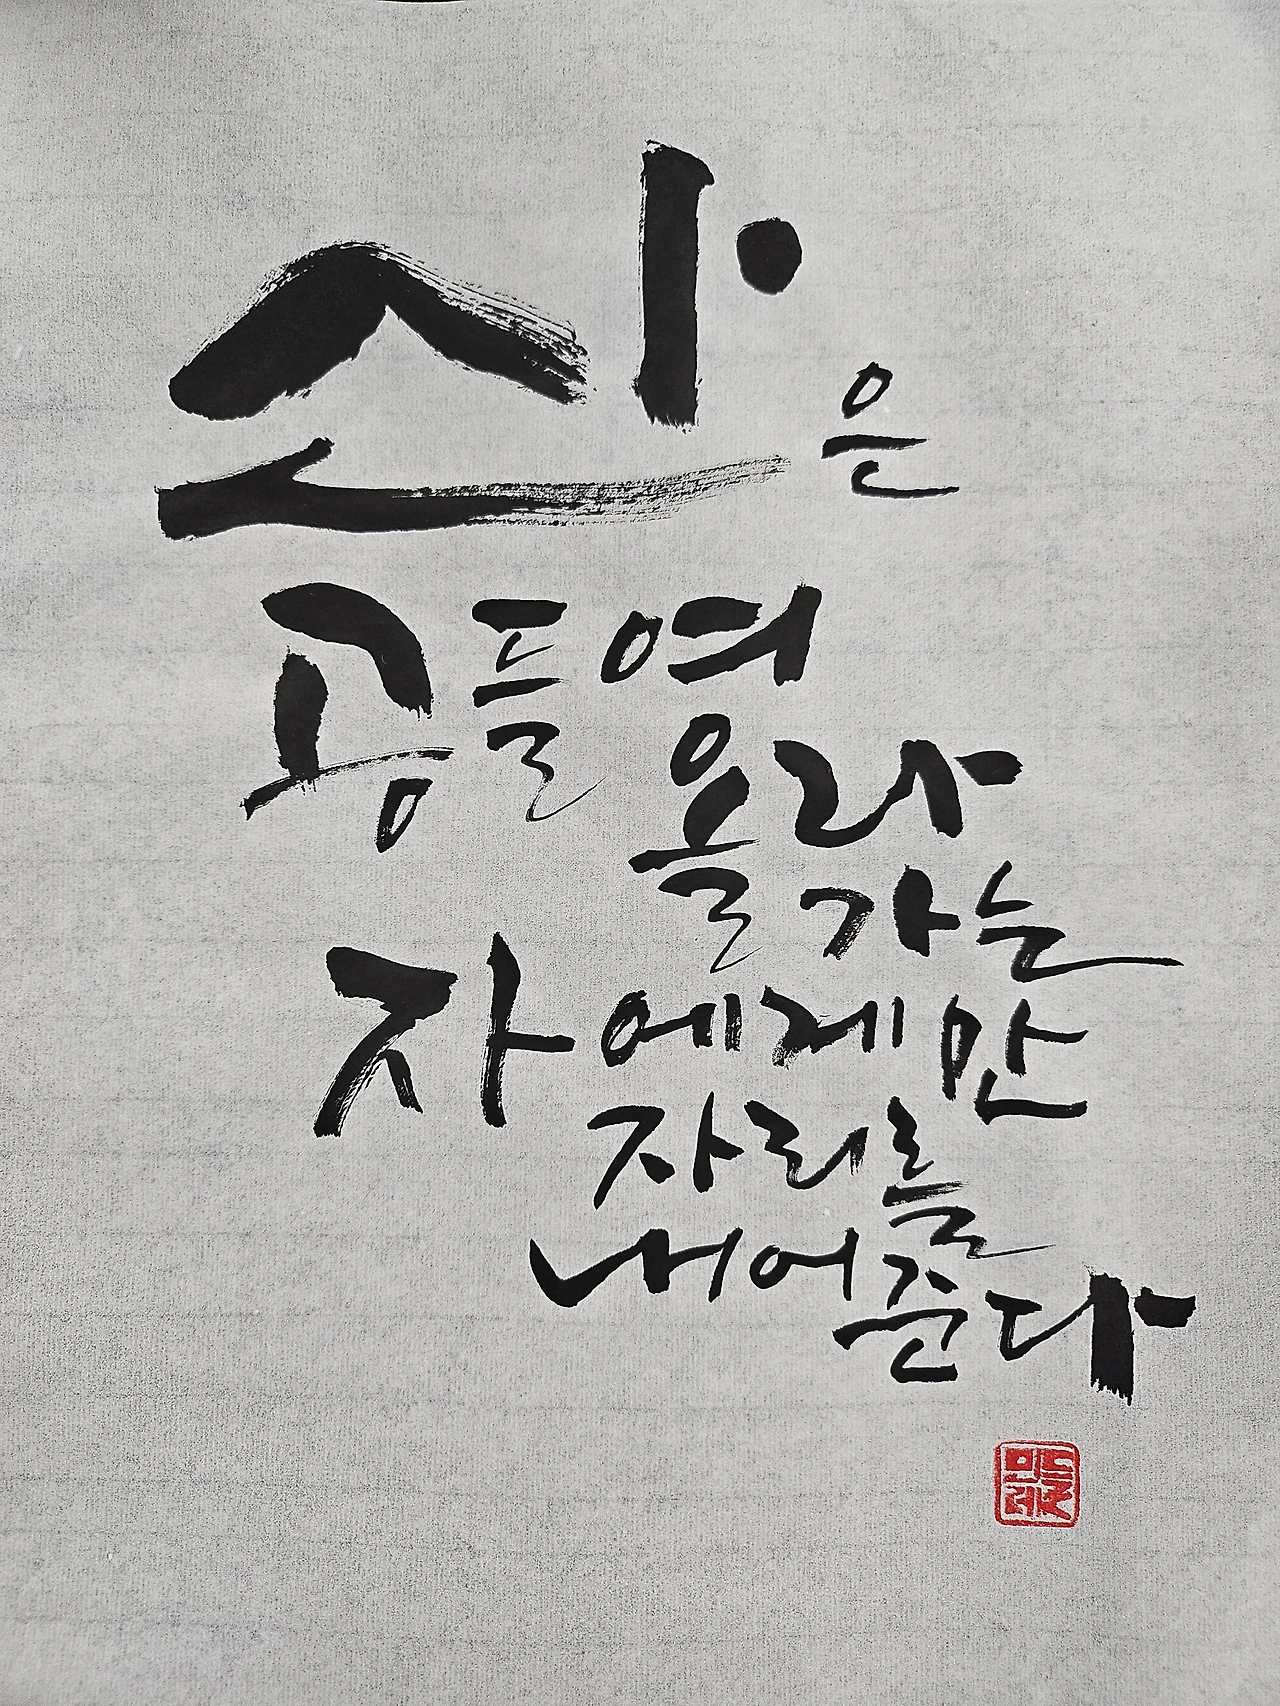 산은
공들여
올라
가는
자에게만
자리를
내어준다